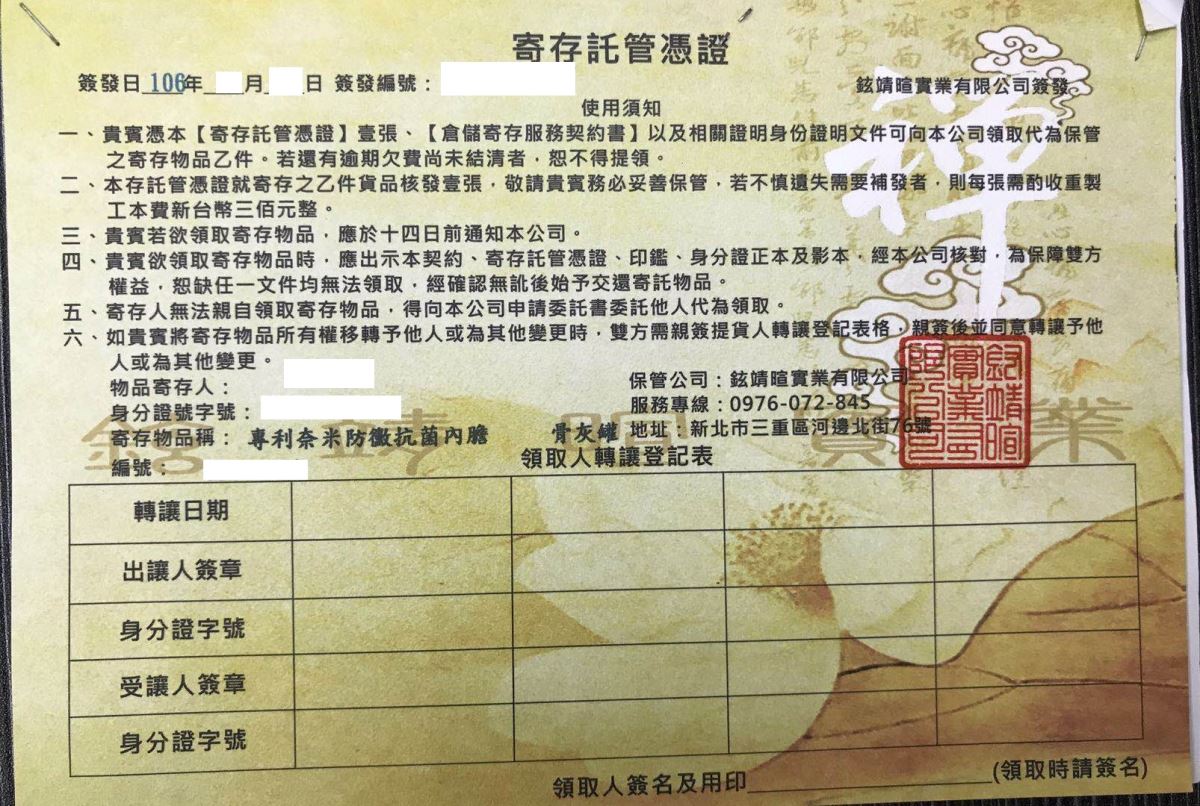 寄存託管憑證
簽發日 106年 月 日 簽發編號：
鉉靖暄實業有限公司簽發
使用須知
一、貴賓憑本【寄存託管憑證】壹張、【倉儲寄存服務契約書】以及相關證明身份證明文件可向本公司領取代為保管
之寄存物品乙件。若還有逾期欠費尚未結清者，恕不得提領。
二、本存託管憑證就寄存之乙件貨品核發壹張，敬請貴賓務必妥善保管，若不慎遺失需要補發者，則每張需酌收重製
工本費新台幣三佰元整。
三、貴賓若欲領取寄存物品，應於十四日前通知本公司。
四、貴賓欲領取寄存物品時，應出示本契約、寄存託管憑證、印鑑、身分證正本及影本，經本公司核對，為保障雙方
權益，恕缺任一文件均無法領取，經確認無訛後始予交還寄託物品。
五、寄存人無法親自領取寄存物品，得向本公司申請委託書委託他人代為領取。
六、如貴賓將寄存物品所有權移轉予他人或為其他變更時，雙方需親簽提貨人轉讓登記表格，親簽後並同意轉讓予他
人或為其他變更。
物品寄存人：
保管公司：鉉靖暄實業有限公司
身分證號字號：
服務專線：0976-072-845
寄存物品稱：專利奈米防黴抗菌內膽 骨灰罐
地址：新北市三重區河邊北街76號
編號：
領取人轉讓登記表
轉讓日期
出讓人簽章
身分證字號
受讓人簽章
身分證字號
領取人簽名及用印 (領取時請簽名)
禪